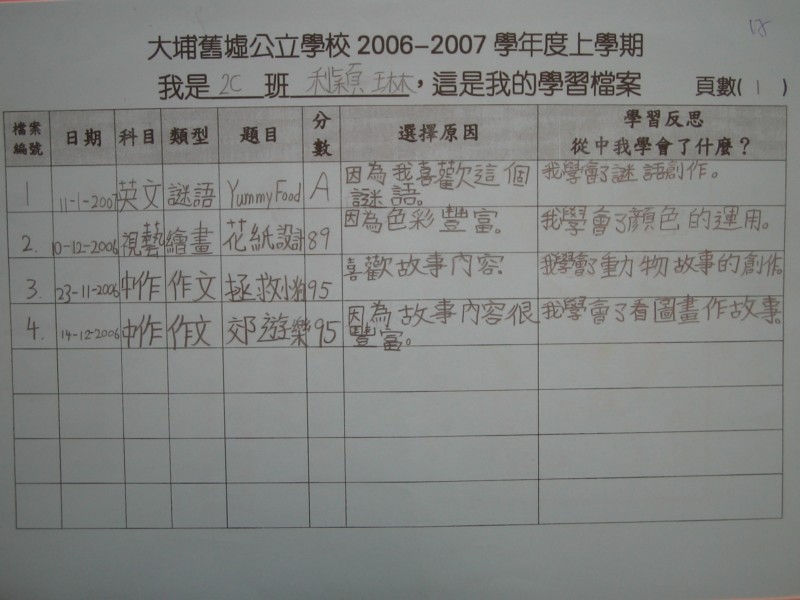 18
大埔舊墟公立學校 2006-2007 學年度上學期
我是 2C 班 利穎琳，這是我的學習檔案 頁數( 1 )
檔案編號 日期 科目 類型 題目 分數 選擇原因 學習反思 從中我學會了什麼？
1 11-1-2007 英文 謎語 Yummy Food A 因為我喜歡這個謎語。 我學會了謎語創作。
2. 10-12-2006 視藝 繪畫 花紙設計 89 因為色彩豐富。 我學會了顏色的運用。
3. 23-11-2006 中作 作文 拯救小狗 95 喜歡故事內容 我學會了動物故事的創作。
4. 14-12-2006 中作 作文 郊遊樂 95 因為故事內容很豐富。 我學會了看圖畫作故事。